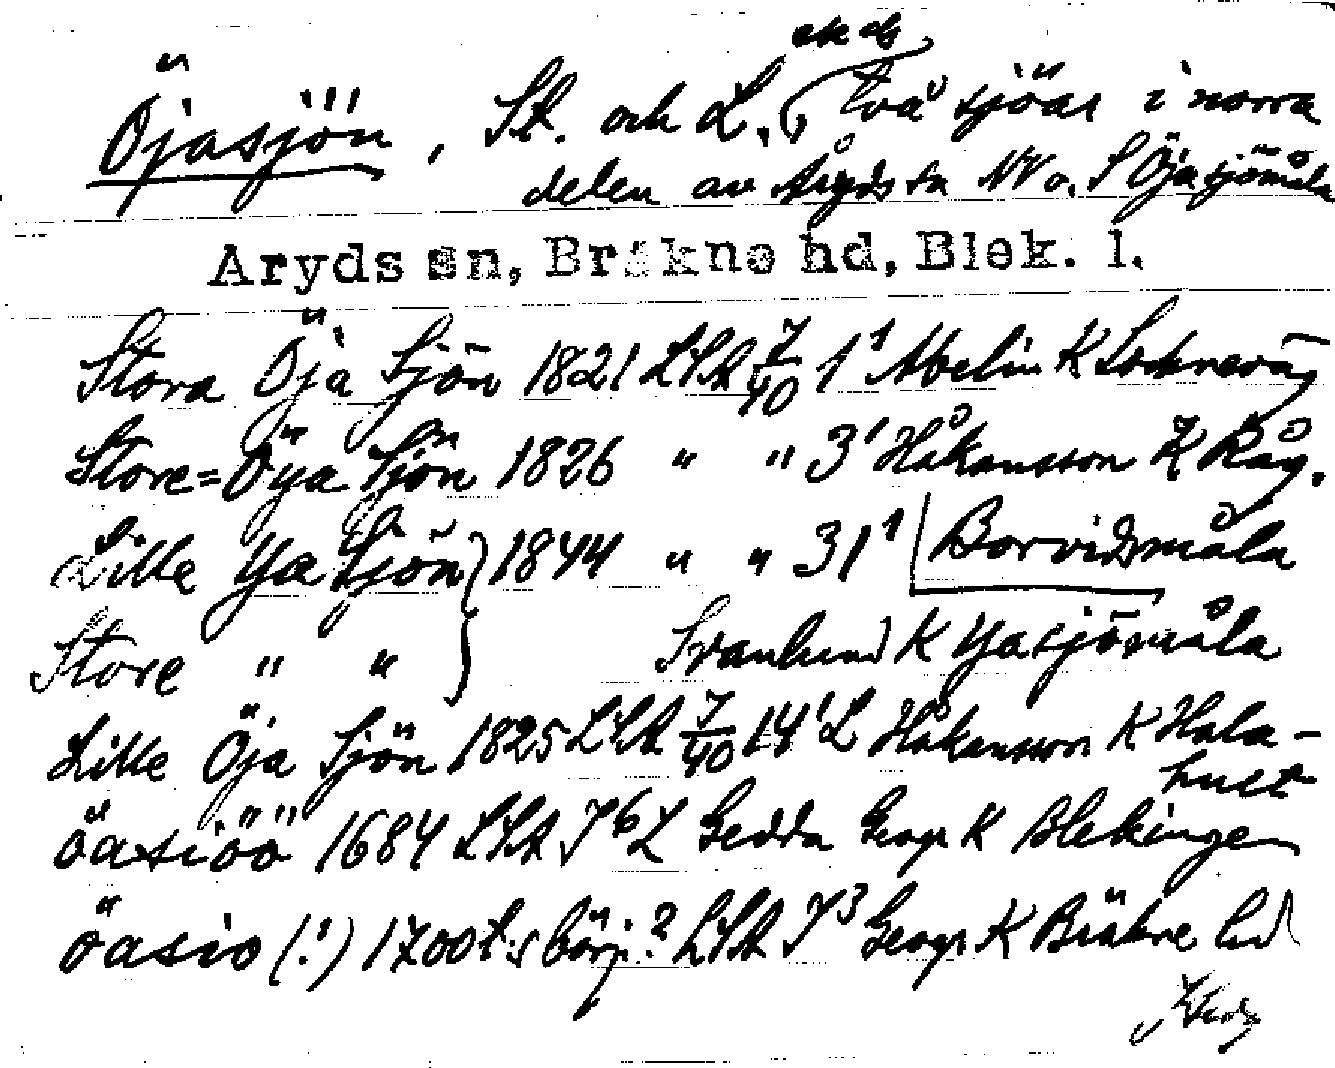 ek ds
Öjasjön, St. och L., två sjöar i norra
delen av Åryds sn NV o. S Öjasjömåla
Aryds sn, Bräkne hd, Blek. l.
Stora Öja Sjön 1821 LSA 7/40 1¹ Melin K
Store=Öya Sjön 1826 " " 3¹ Håkansson K Råg.
Lille Ya Sjön } 1844 " " 31¹ Borvidsmåla
Store " " } Svanlund K Yasjömåla
Lille Öja Sjön 1825 LSA 7/40 14¹ L Håkansson K Hala-
hult
öasiöö 1684 LSA J⁶ L Gedda Geogr K Blekinge
öasio (!) 1700 t:s börj.? LSA J³ Geogr K Bräkne hd